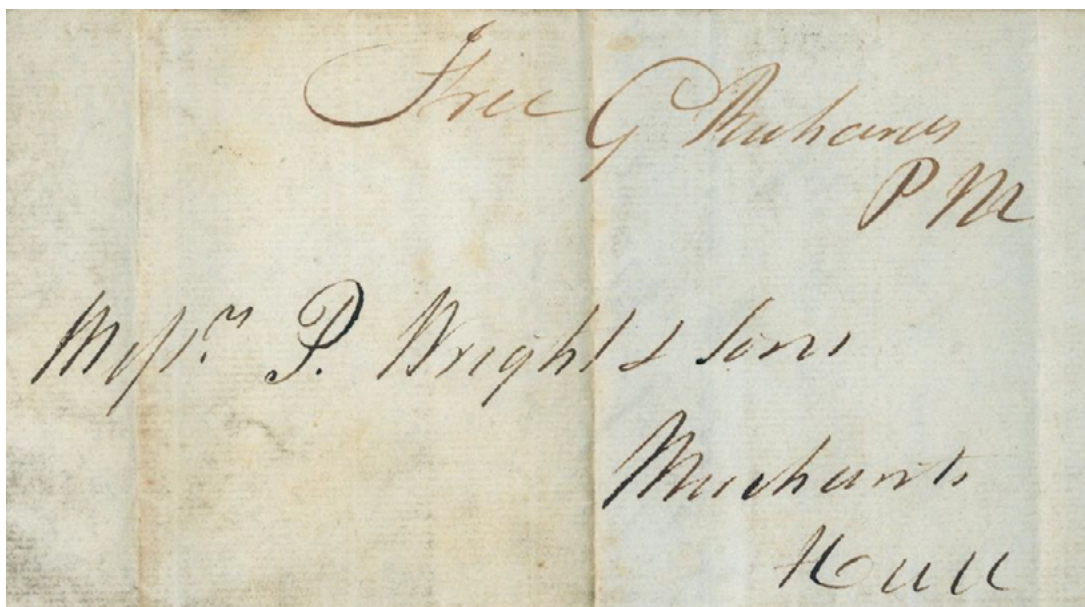 Free G Richards
P M
Messrs. P. Wright & Sons
Merchants
Hull